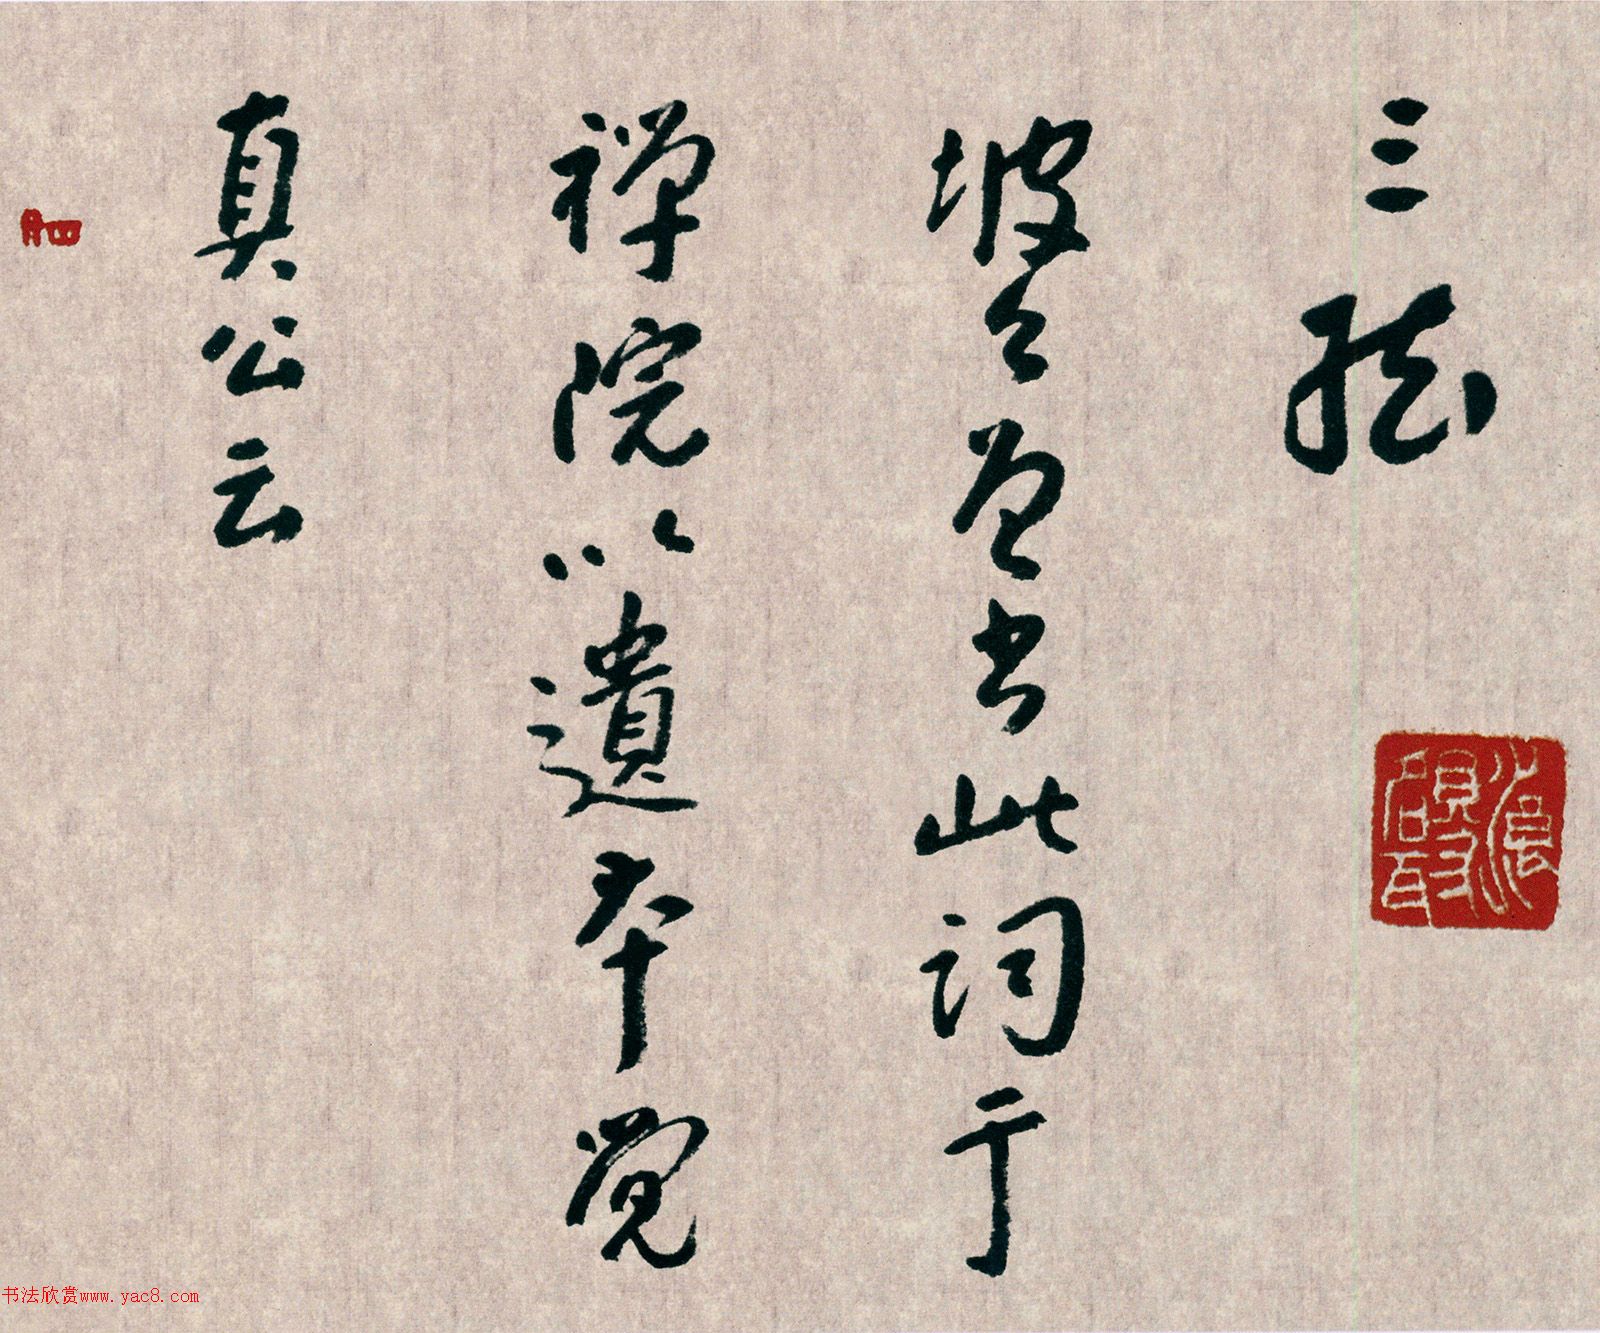 三聽
坡公曾書此词于
禅院以遺本覺
真公云
书法欣赏www.yac8.com